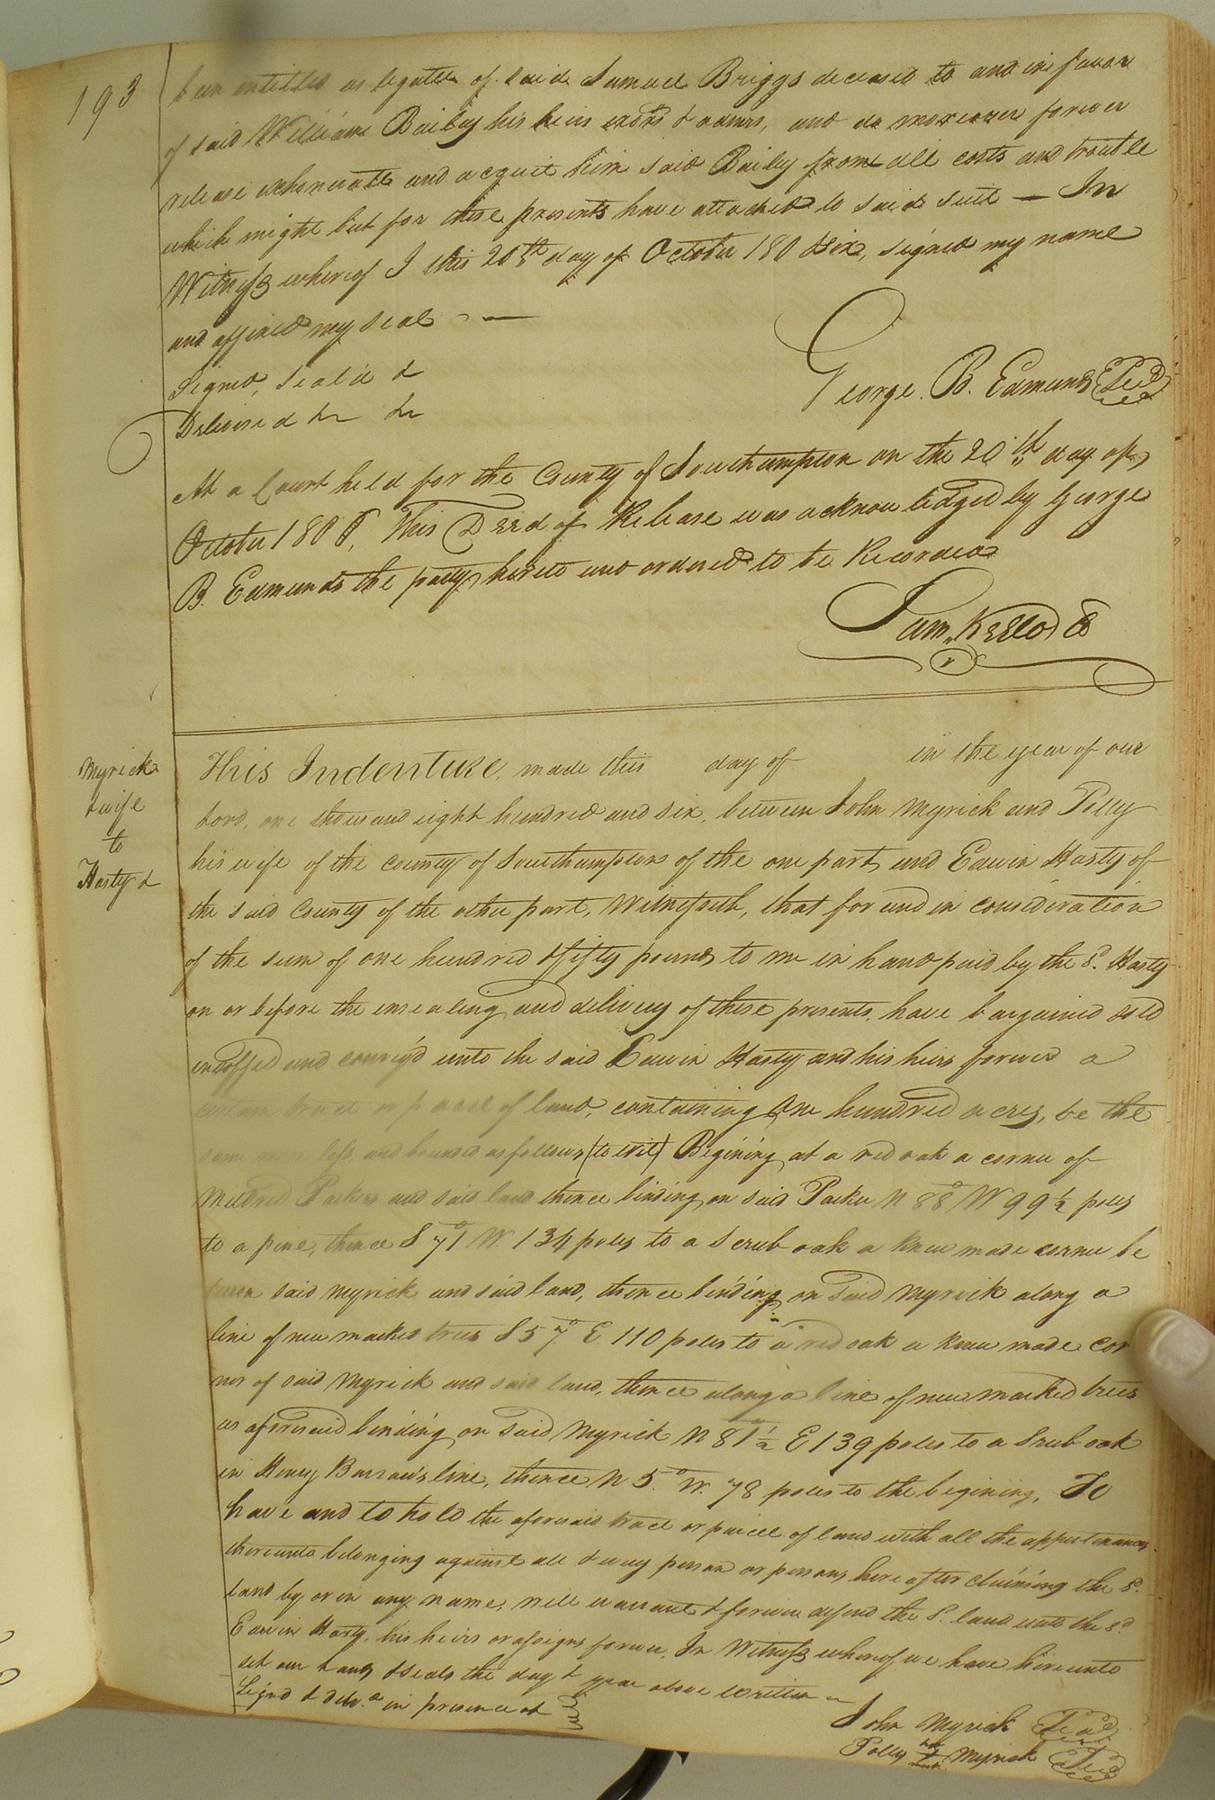 193
been entitled as legatee of said Samuel Briggs deceased to and in favour
of said William Bailey his heirs exōrs & admrs, and do moreover forever
release exhonerate and acquit him said Bailey from all costs and trouble
which might but for these presents have attached to said suit — In
Witness whereof I this 20th day of October 180 six, signed my name
and affixed my seal —
Signed, seal'd &
Delivered &c &c
George. B. Edmunds Seal
At a Court held for the County of Southampton on the 20th day of
October 1806, This Deed of Release was acknowledged by George
B. Edmunds the party hereto and ordered to be Recorded
Sam. Kello
Myrick
& wife
to
Hasty &
This Indenture, made this day of in the year of our
Lord, one thousand eight hundred and six, between John Myrick and Polly
his wife of the county of Southampton of the one part and Edwin Hasty of
the said County of the other part, Witnesseth, that for and in consideration
of the sum of one hundred & fifty pounds to me in hand paid by the sd. Hasty
on or before the ensealing and delivery of these presents, have bargained sold
enfoffed and convey'd unto the said Edwin Hasty and his heirs forever a
certain tract or parcel of land, containing One hundred acres, be the
same more less and bounded as follows (to wit) Begining at a red oak a corner of
Mildred Parkers and said land thence binding on said Parker N 88° W 99½ poles
to a pine, thence S 71° W. 134 poles to a Scrub oak a knew made corner be
tween said Myrick and said land, thence binding on said Myrick along a
line of new marked trees S 57° E. 110 poles to a red oak a knew made cor
ner of said Myrick and said land, thence along a line of new marked trees
as aforesaid binding on said Myrick N 81½ E 139 poles to a Srub oak
in Henry Barrow's line, thence N 5° W. 78 poles to the begining, To
have and to hold the aforesaid tract or parcel of land with all the appurtenances
thereunto belonging against all & every person or persons hereafter claiming the sd.
land by or in any name, will warrant & forever defend the sd. land unto the sd.
Edwin Hasty, his heirs or assigns forever, In Witness whereof we have hereunto
set our hands & seals the day & year above written —
Sign'd & delvd. in presence of
John Myrick Seal
Polly her mark Myrick Seal